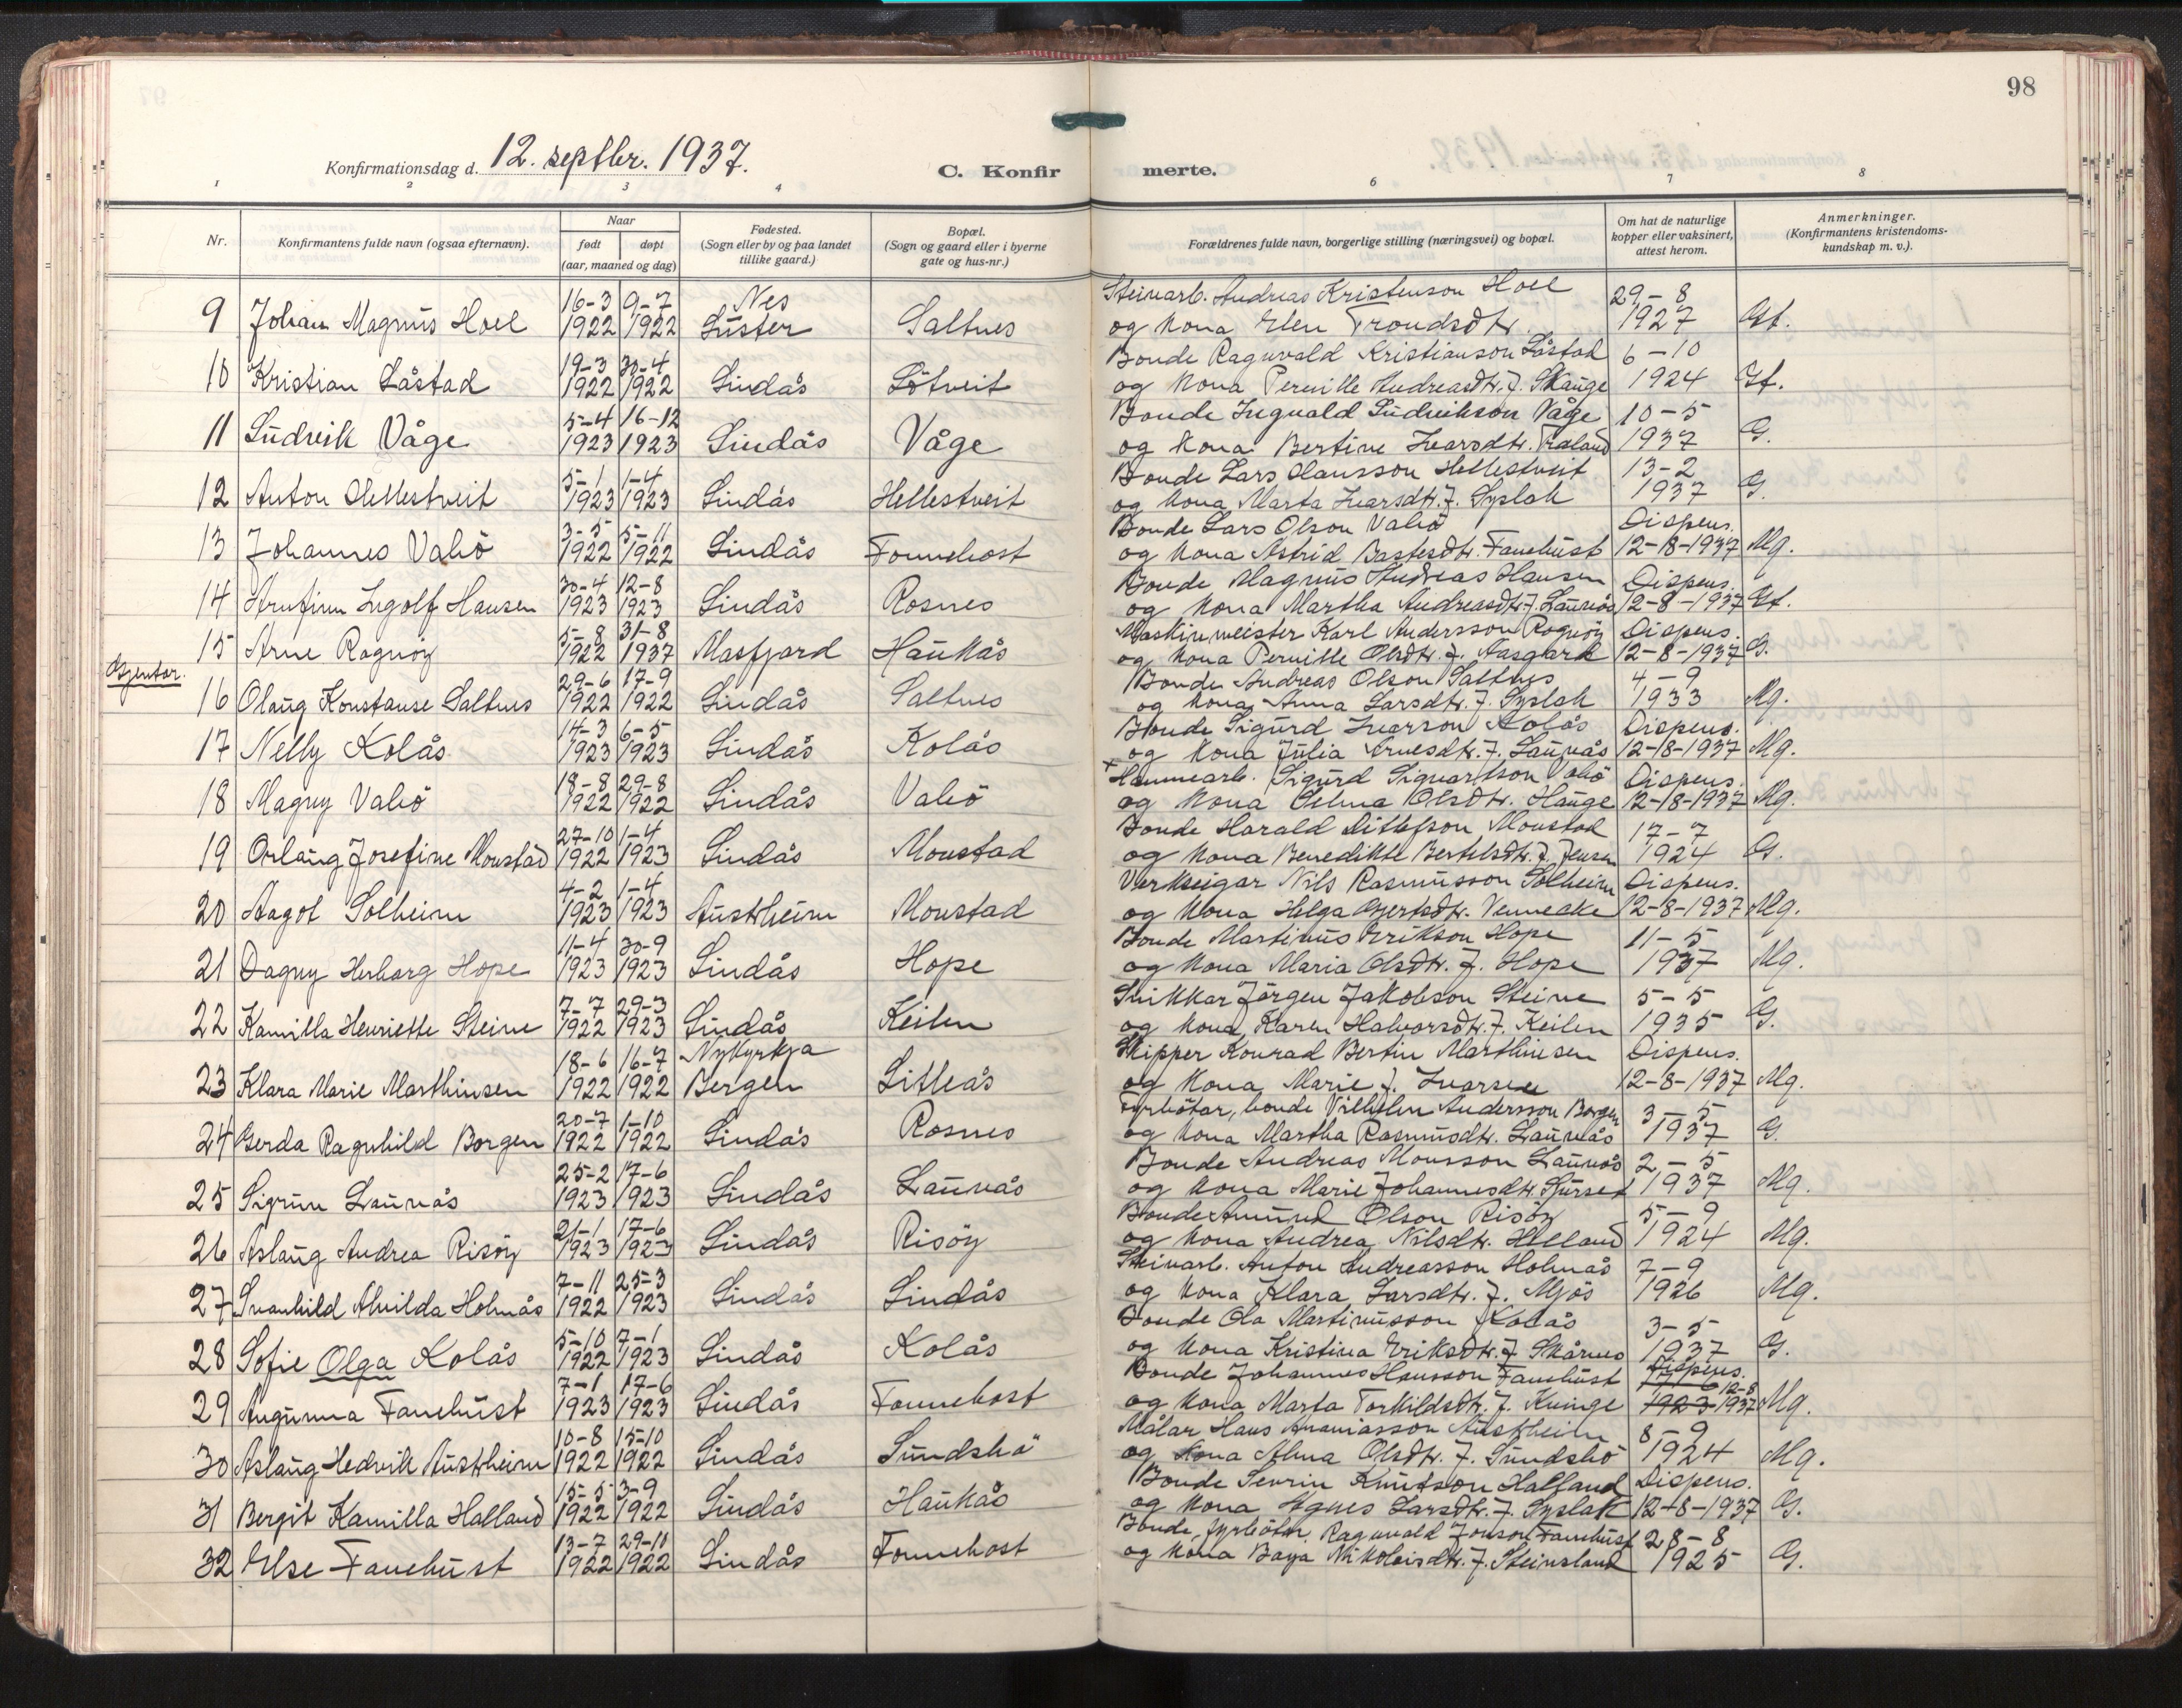 98
Konfirmationsdag d. 12. septbr. 1937.
C. Konfirmerte.
1 2 3 4 6 7 8
Nr.
Konfirmantens fulde navn (ogsaa efternavn).
Naar
født døpt
(aar, maaned og dag)
Fødested.
(Sogn eller by og paa landet
tillike gaard.)
Bopæl.
(Sogn og gaard eller i byerne
gate og hus-nr.)
Forældrenes fulde navn, borgerlige stilling (næringsvei) og bopæl.
Om hat de naturlige
kopper eller vaksinert,
attest herom.
Anmerkninger.
(Konfirmantens kristendoms-
kundskap m. v.).
16-3 9-7 Nes Steinarb. Andreas Kristenson Hoel 29-8
9 Johan Magnus Hoel 1922 1922 Luster Saltnes og kona Elen Trondsdtr. 1927
19-3 30-4 Bonde Ragnvald Kristianson Låstad 6-10
10 Kristian Låstad 1922 1922 Lindås Løtveit og kona Pernille Andreasdtr. f. Skauge 1924
5-4 16-12 Bonde Ingvald Ludvikson Våge 10-5
11 Ludvik Våge 1923 1923 Lindås Våge og kona Bertine Ivarsdtr. 1937 G.
5-1 1-4 Bonde Lars Hansson Hellestveit 13-2
12 Anton Hellestveit 1923 1923 Lindås Hellestveit og kona Marta Ivarsdtr. f. Syslak 1937 G.
3-5 5-11 Bonde Lars Olson Valsö Dispens.
13 Johannes Valsö 1922 1922 Lindås Fonnebost og kona Astrid Fanebust 12-8-1937 Mg.
30-4 12-8 Bonde Magnus Andreas Hansen Dispens.
14 Arnfinn Ingolf Hansen 1923 1923 Lindås Rosnes og kona Martha Andreasdtr. f. Launås 12-8-1937
5-8 31-8 Maskinmeister Karl Andersson Rognöy Dispens.
15 Arne Rognöy 1922 1937 Masfjord Haukås og kona Pernille Olsdtr. f. Aasgard 12-8-1937 G.
Gjentor.
29-6 17-9 Bonde Andreas Olson Saltnes 4-9
16 Olaug Konstanse Saltnes 1922 1922 Lindås Saltnes og kona Anna Larsdtr. f. Syslak 1933 Mg.
14-3 6-5 Bonde Sigurd Ivarson Kolås Dispens.
17 Nelly Kolås 1923 1923 Lindås Kolås og kona Julia Arnesdtr. f. Launås 12-8-1937 Mg.
18-8 29-8 Sigurd Sigvartson Valsö Dispens.
18 Magny Valsö 1922 1922 Lindås Valsö og kona Selma Olsdtr. Hauge 12-8-1937 Mg.
27-10 1-4 Bonde Harald Ditlefson Monstad 17-7
19 Orlaug Josefine Monstad 1922 1923 Lindås Monstad og kona Benedikte Bertelsdtr. f. Jensen 1924 G.
4-2 1-4 Verkseigar Nils Rasmusson Solheim Dispens.
20 Aagot Solheim 1923 1923 Austrheim Monstad og kona Helga Gjertsdtr. Vennecke 12-8-1937 Mg.
11-4 30-9 Bonde Martinus Erikson Hope 11-5
21 Dagny Herborg Hope 1923 1923 Lindås Hope og kona Maria Olsdtr. f. Hope 1937 Mg.
7-7 29-3 Snikkar Jörgen Jakobson Steine 5-5
22 Kamilla Henriette Steine 1922 1923 Lindås Keilen og kona Karen Halvorsdtr. f. Keilen 1935 G.
18-6 16-7 Nykyrkja Skipper Konrad Bertin Marthinsen Dispens.
23 Klara Marie Marthinsen 1922 1922 Bergen Litleås og kona Marie f. Ivarsen 12-8-1937 Mg.
20-7 1-10 Fyrbötar, bonde Vilhelm Andersson Borgen 3-5
24 Gerda Ragnhild Borgen 1922 1922 Lindås Rosnes og kona Martha Rasmusdtr. Launås 1937 G.
25-2 17-6 Bonde Andreas Monsson Launås 2-5
25 Sigrun Launås 1923 1923 Lindås Launås og kona Marie Johannesdtr. 1937 Mg.
21-1 17-6 Bonde Amund Olson Risöy 5-9
26 Aslaug Andrea Risöy 1923 1923 Lindås Risöy og kona Andrea Nilsdtr. Helland 1924 Mg.
7-11 25-3 Steinarb. Anton Andreasson Holmås 7-9
27 Svanhild Alvilda Holmås 1922 1923 Lindås Lindås og kona Klara Larsdtr. f. Mjös 1926 Mg.
5-10 7-1 Bonde Ola Martinusson Kolås 3-5
28 Sofie Olga Kolås 1922 1923 Lindås Kolås og kona Kristina Eriksdtr. f. Skårnes 1937 G.
7-1 17-6 Bonde Johannes Hansson Fanebust Dispens.
29 Augunna Fanebust 1923 1923 Lindås Fonnebost og kona Marta Torkildsdtr. f. Kvinge 1923 12-8 1937 Mg.
10-8 15-10 Målar Hans Ananiasson Austrheim 8-9
30 Aslaug Hedvik Austrheim 1922 1922 Lindås Sundsbö og kona Alma Olsdtr. f. Sundsbö 1924 Mg.
15-5 3-9 Bonde Sevrin Knutson Halland Dispens.
31 Bergit Kamilla Halland 1922 1922 Lindås Haukås og kona Agnes Larsdtr. f. Syslak 12-8-1937 G.
13-7 29-10 Bonde, fyrbötar Ragnvald Jonson Fanebust 28-8
32 Else Fanebust 1922 1922 Lindås Fonnebost og kona Baya Nikolaisdtr. f. Steinsland 1925 G.